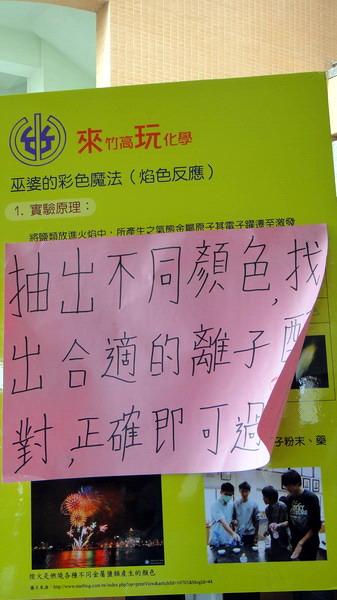 來竹高玩化學
巫婆的彩色魔法（焰色反應）
1. 實驗原理：
將鹽類放進火焰中，所產生之氣態金屬原子其電子躍遷至激發
抽出不同顏色，找
出合適的離子配
對，正確即可過
子粉末、藥
煙火是燃燒各種不同金屬鹽類產生的顏色